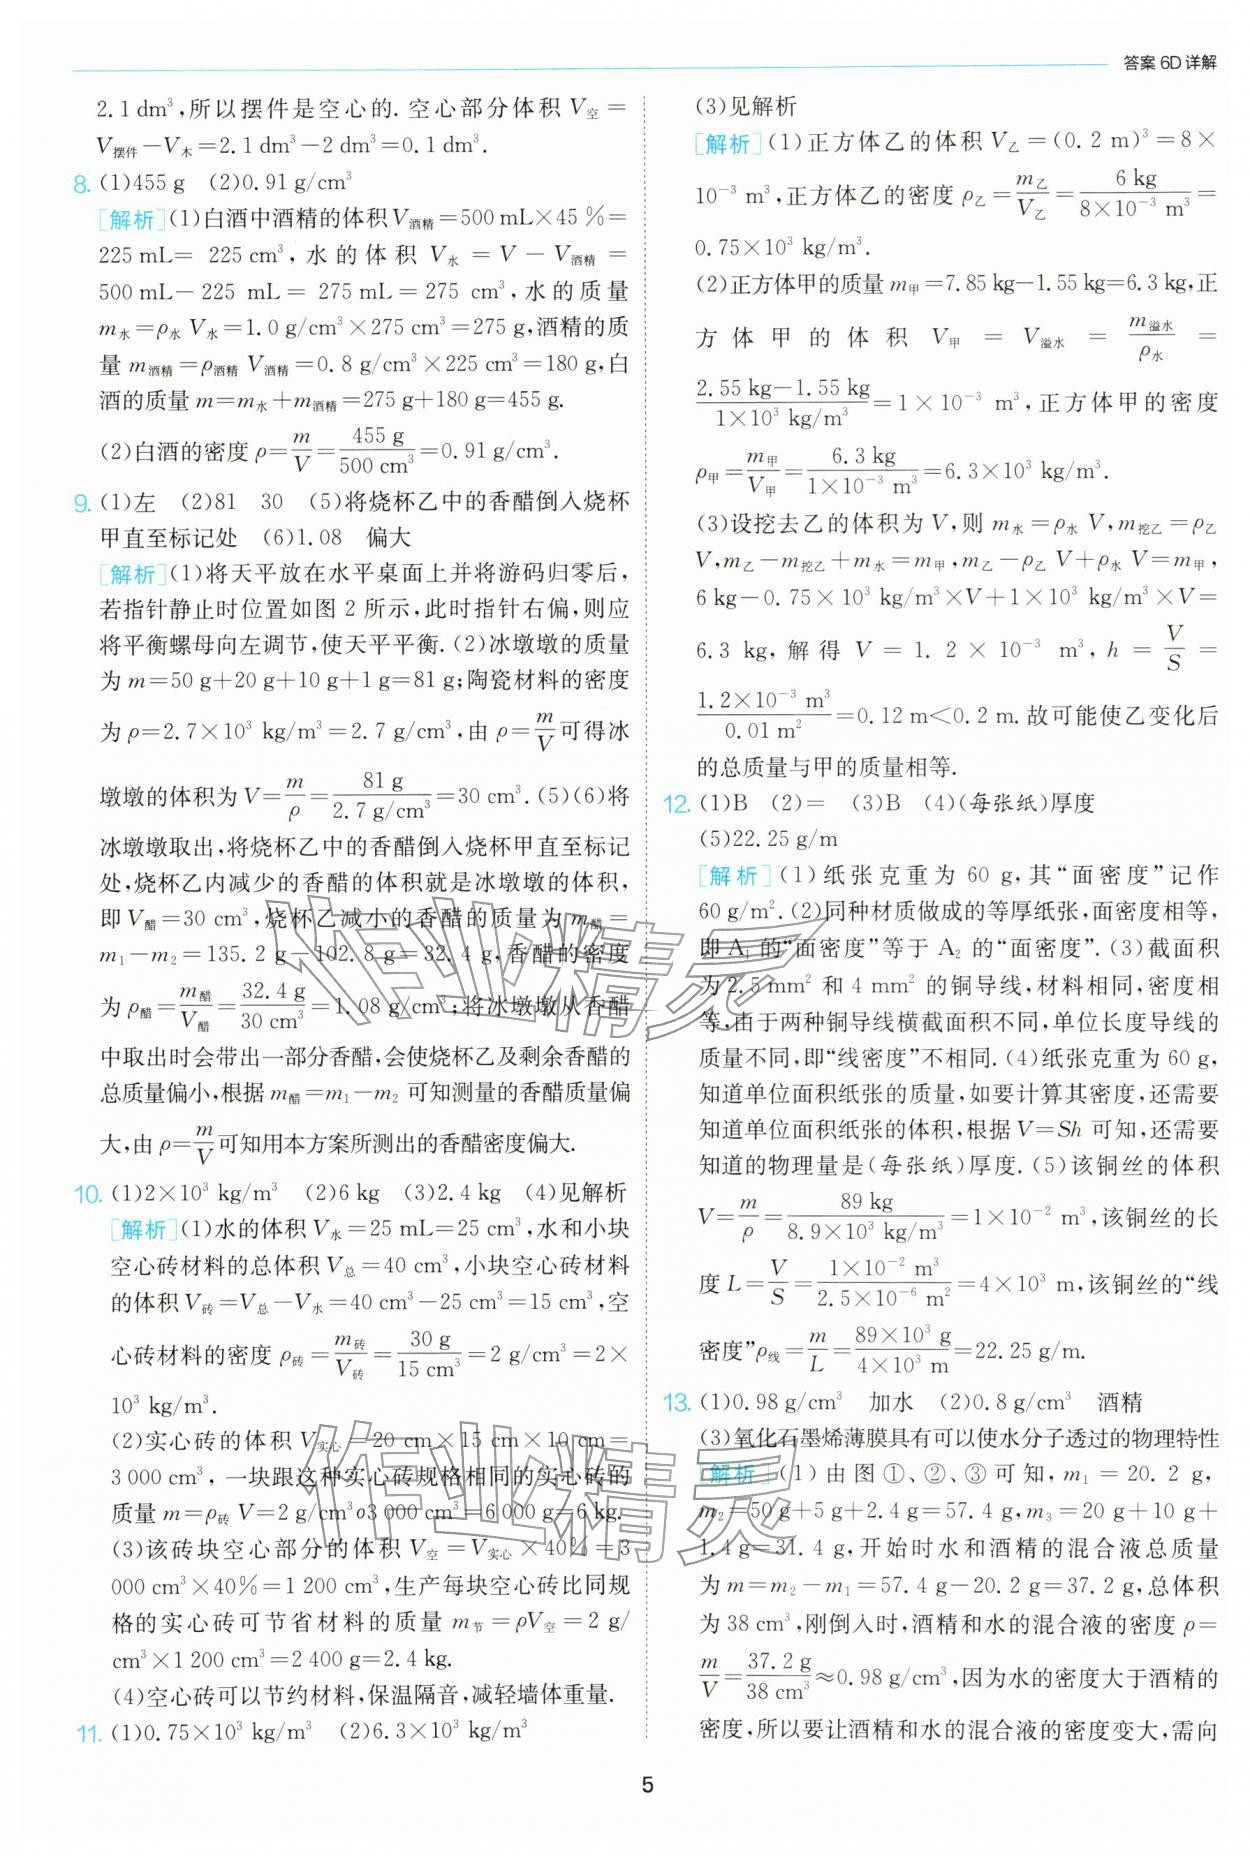 答案 6D 详解
2.1 dm³,所以摆件是空心的.空心部分体积 V空=
V摆件-V木=2.1 dm³-2 dm³=0.1 dm³.
8. (1)455 g (2)0.91 g/cm³
[解析](1)白酒中酒精的体积V酒精=500 mL×45 %=
225 mL= 225 cm³,水的体积 V水=V-V酒精=
500 mL-225 mL=275 mL=275 cm³,水的质量
m水=ρ水 V水=1.0 g/cm³×275 cm³=275 g,酒精的质
量 m酒精=ρ酒精 V酒精=0.8 g/cm³×225 cm³=180 g,白
酒的质量 m=m水+m酒精=275 g+180 g=455 g.
(2)白酒的密度 ρ=m/V=455 g/500 cm³=0.91 g/cm³.
9. (1)左 (2)81 30 (5)将烧杯乙中的香醋倒入烧杯
甲直至标记处 (6)1.08 偏大
[解析](1)将天平放在水平桌面上并将游码归零后,
若指针静止时位置如图 2 所示,此时指针右偏,则应
将平衡螺母向左调节,使天平平衡.(2)冰墩墩的质量
为 m=50 g+20 g+10 g+1 g=81 g;陶瓷材料的密度
为 ρ=2.7×10³ kg/m³=2.7 g/cm³,由 ρ=m/V可得冰
墩墩的体积为 V=m/ρ=81 g/2.7 g/cm³=30 cm³.(5)(6)将
冰墩墩取出,将烧杯乙中的香醋倒入烧杯甲直至标记
处,烧杯乙内减少的香醋的体积就是冰墩墩的体积,
即 V醋=30 cm³,烧杯乙减小的香醋的质量为 m醋=
m₁-m₂=135.2 g-102.8 g=32.4 g,香醋的密度
为 ρ醋=m醋/V醋=32.4 g/30 cm³=1.08 g/cm³;将冰墩墩从香醋
中取出时会带出一部分香醋,会使烧杯乙及剩余香醋的
总质量偏小,根据 m醋=m₁-m₂ 可知测量的香醋质量偏
大,由 ρ=m/V可知用本方案所测出的香醋密度偏大.
10. (1)2×10³ kg/m³ (2)6 kg (3)2.4 kg (4)见解析
[解析](1)水的体积 V水=25 mL=25 cm³,水和小块
空心砖材料的总体积 V总=40 cm³,小块空心砖材料
的体积 V砖=V总-V水=40 cm³-25 cm³=15 cm³,空
心砖材料的密度 ρ砖=m砖/V砖=30 g/15 cm³=2 g/cm³=2×
10³ kg/m³.
(2)实心砖的体积 V实心=20 cm×15 cm×10 cm=
3 000 cm³,一块跟这种实心砖规格相同的实心砖的
质量 m=ρ砖 V=2 g/cm³o3 000 cm³=6 000 g=6 kg.
(3)该砖块空心部分的体积 V空=V实心×40%=3
000 cm³×40%=1 200 cm³,生产每块空心砖比同规
格的实心砖可节省材料的质量 m节=ρV空=2 g/
cm³×1 200 cm³=2 400 g=2.4 kg.
(4)空心砖可以节约材料,保温隔音,减轻墙体重量.
11. (1)0.75×10³ kg/m³ (2)6.3×10³ kg/m³
(3)见解析
[解析](1)正方体乙的体积 V乙=(0.2 m)³=8×
10⁻³ m³,正方体乙的密度 ρ乙=m乙/V乙=6 kg/8×10⁻³ m³=
0.75×10³ kg/m³.
(2)正方体甲的质量 m甲=7.85 kg-1.55 kg=6.3 kg,正
方体甲的体积 V甲 = V溢水 = m溢水/ρ水 =
2.55 kg-1.55 kg/1×10³ kg/m³=1×10⁻³ m³,正方体甲的密度
ρ甲=m甲/V甲=6.3 kg/1×10⁻³ m³=6.3×10³ kg/m³.
(3)设挖去乙的体积为 V,则 m水=ρ水 V,m挖乙=ρ乙
V,m乙-m挖乙+m水=m甲,m乙-ρ乙 V+ρ水 V=m甲,
6 kg-0.75×10³ kg/m³×V+1×10³ kg/m³×V=
6.3 kg,解得 V=1.2×10⁻³ m³,h=V/S=
1.2×10⁻³ m³/0.01 m²=0.12 m<0.2 m.故可能使乙变化后
的总质量与甲的质量相等.
12. (1)B (2)= (3)B (4)(每张纸)厚度
(5)22.25 g/m
[解析](1)纸张克重为 60 g,其“面密度”记作
60 g/m².(2)同种材质做成的等厚纸张,面密度相等,
即 A₁ 的“面密度”等于 A₂ 的“面密度”.(3)截面积
为 2.5 mm² 和 4 mm² 的铜导线,材料相同,密度相
等,由于两种铜导线横截面积不同,单位长度导线的
质量不同,即“线密度”不相同.(4)纸张克重为 60 g,
知道单位面积纸张的质量,如要计算其密度,还需要
知道单位面积纸张的体积,根据 V=Sh 可知,还需要
知道的物理量是(每张纸)厚度.(5)该铜丝的体积
V=m/ρ=89 kg/8.9×10³ kg/m³=1×10⁻² m³,该铜丝的长
度 L=V/S=1×10⁻² m³/2.5×10⁻⁶ m²=4×10³ m,该铜丝的“线
密度”ρ线=m/L=89×10³ g/4×10³ m=22.25 g/m.
13. (1)0.98 g/cm³ 加水 (2)0.8 g/cm³ 酒精
(3)氧化石墨烯薄膜具有可以使水分子透过的物理特性
[解析](1)由图①、②、③可知,m₁=20.2 g,
m₂=50 g+5 g+2.4 g=57.4 g,m₃=20 g+10 g+
1.4 g=31.4 g,开始时水和酒精的混合液总质量
为 m=m₂-m₁=57.4 g-20.2 g=37.2 g,总体积
为 38 cm³,刚倒入时,酒精和水的混合液的密度 ρ=
m/V=37.2 g/38 cm³≈0.98 g/cm³,因为水的密度大于酒精的
密度,所以要让酒精和水的混合液的密度变大,需向
5
作业精灵
作业精灵